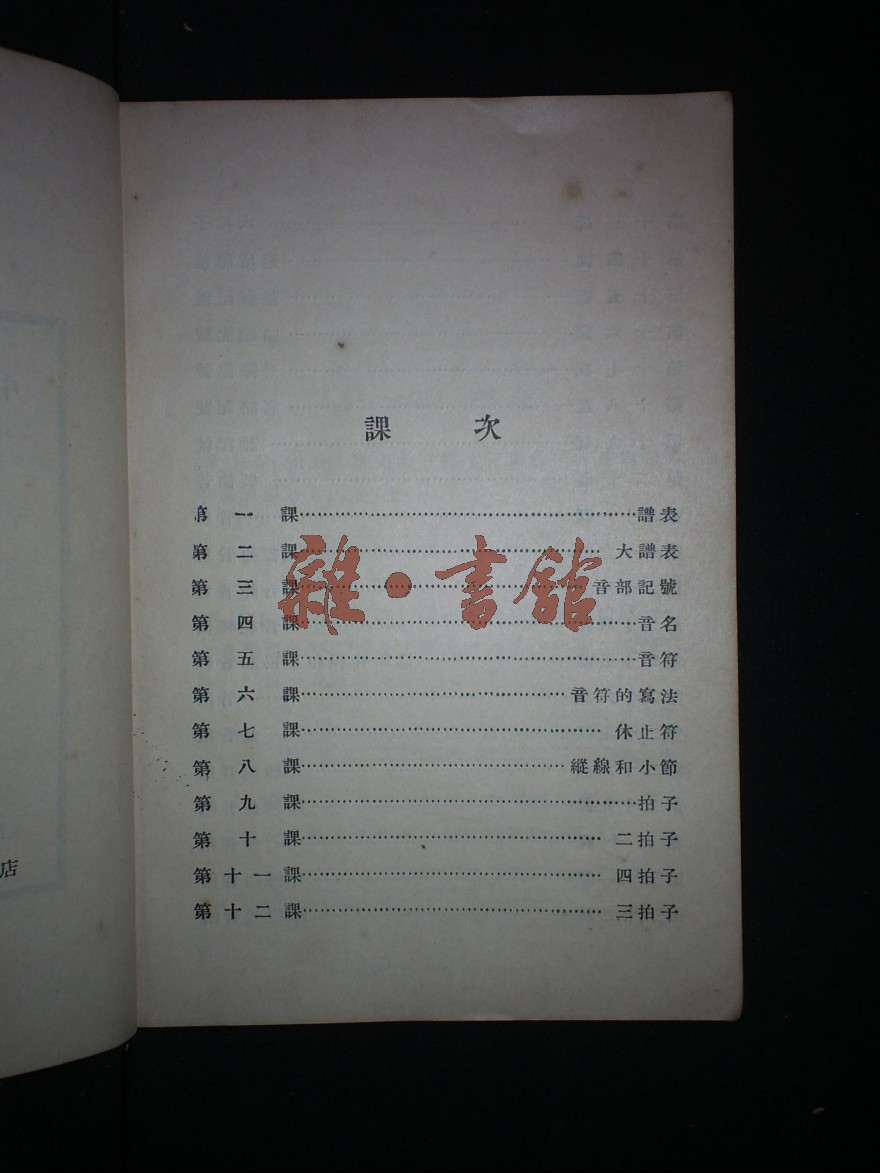 課 次
第一課……譜表
第二課……大譜表
第三課……音部記號
第四課……音名
第五課……音符
第六課……音符的寫法
第七課……休止符
第八課……縱線和小節
第九課……拍子
第十課……二拍子
第十一課……四拍子
第十二課……三拍子
雜·書館
店